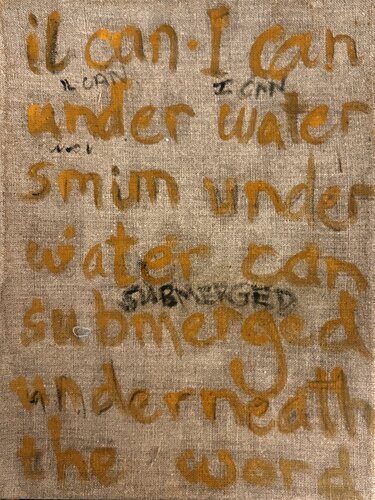 il can · I can
IL CAN. I CAN
under water
smim under
water can
SUBMERGED
submerged
underneath
the word